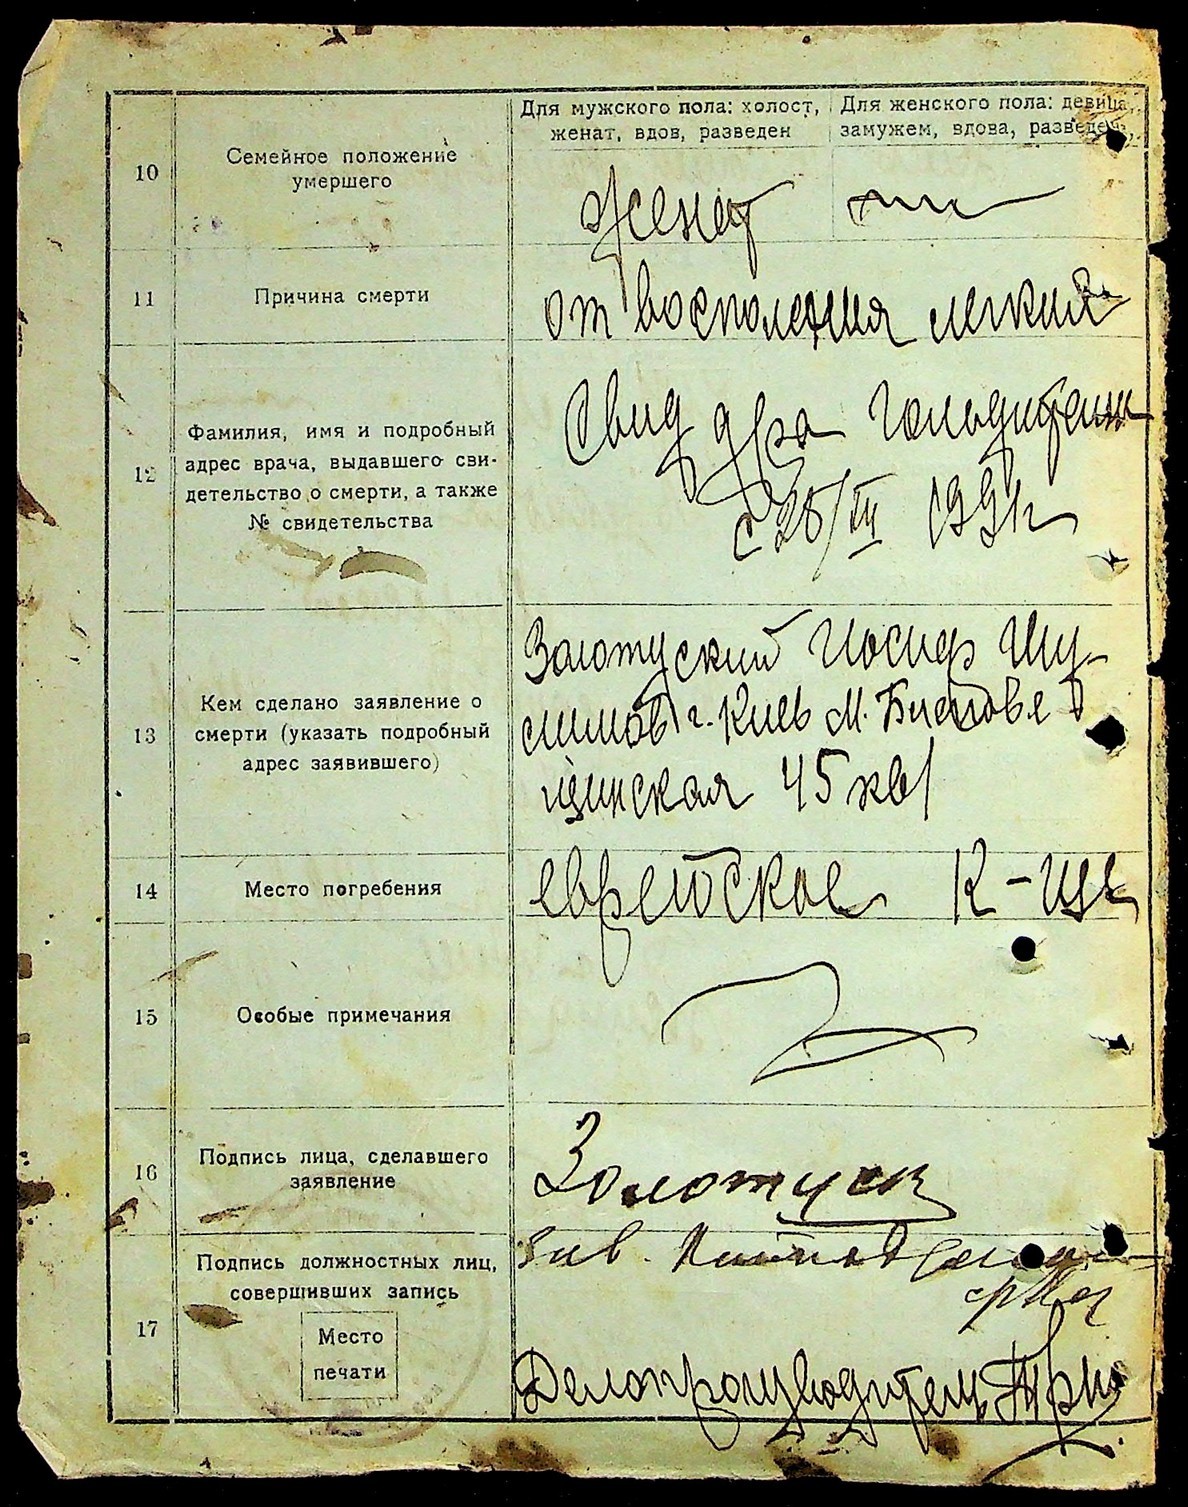 Для мужского пола: холост, женат, вдов, разведен
Для женского пола: девица, замужем, вдова, разведена
10
Семейное положение
умершего
Женат
11
Причина смерти
от восполения легких
12
Фамилия, имя и подробный
адрес врача, выдавшего сви-
детельство о смерти, а также
№ свидетельства
Свид д/ра
с 28/III
13
Кем сделано заявление о
смерти (указать подробный
адрес заявившего)
Золотуский Иосиф Шу-
лимов г. Киев М.
щинская 45 кв 1
14
Место погребения
еврейское К-ще
15
Особые примечания
16
Подпись лица, сделавшего
заявление
Золотуск
17
Подпись должностных лиц,
совершивших запись
Место
печати
Зав.
Делопроизводитель